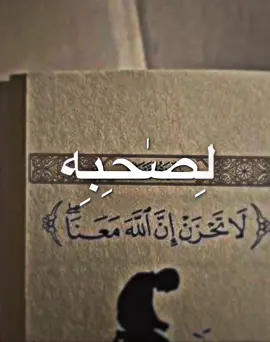 لِصَٰحِبِهِ
﴿لَا تَحْزَنْ إِنَّ ٱللَّهَ مَعَنَا﴾